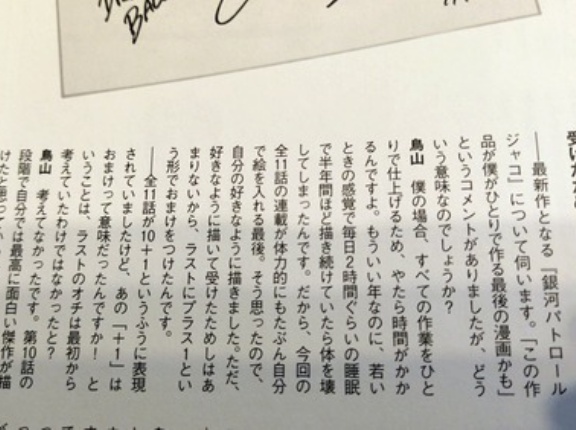 ――最新作となる『銀河パトロール
ジャコ』について伺います。「この作
品が僕がひとりで作る最後の漫画かも」
というコメントがありましたが、どう
いう意味なのでしょうか?
鳥山 僕の場合、すべての作業をひと
りで仕上げるため、やたら時間がかか
るんですよ。もういい年なのに、若い
ときの感覚で毎日2時間ぐらいの睡眠
で半年間ほど描き続けていたら体を壊
してしまったんです。だから、今回の
全11話の連載が体力的にもたぶん自分
で絵を入れる最後。そう思ったので、
自分の好きなように描きました。ただ、
好きなように描いて受けたためしはあ
まりないから、ラストにプラス1とい
う形でおまけをつけたんです。
――全11話が10+1というふうに表現
されていましたけど、あの「+1」は
おまけって意味だったんですか! と
いうことは、ラストのオチは最初から
考えていたわけではなかったと?
鳥山 考えてなかったです。第10話の
段階で自分では最高に面白い傑作が描
けたと思って